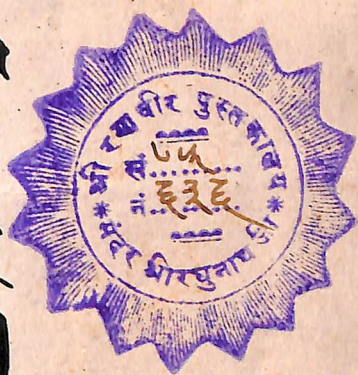 श्री रघुवीर पुस्तकालय
सं.
नं. ६३६
मंदर श्रीरघुनाथ जी